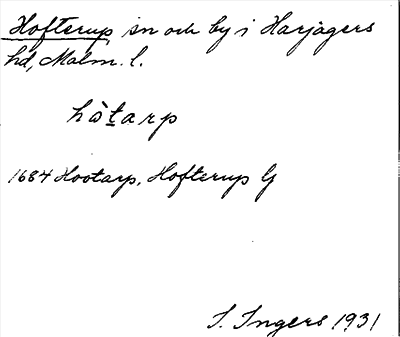 Hofterup sn och by i Harjagers
hd, Malm. l.
hòtarp
1684 Hootarp, Hofterup G
I. Ingers 1931